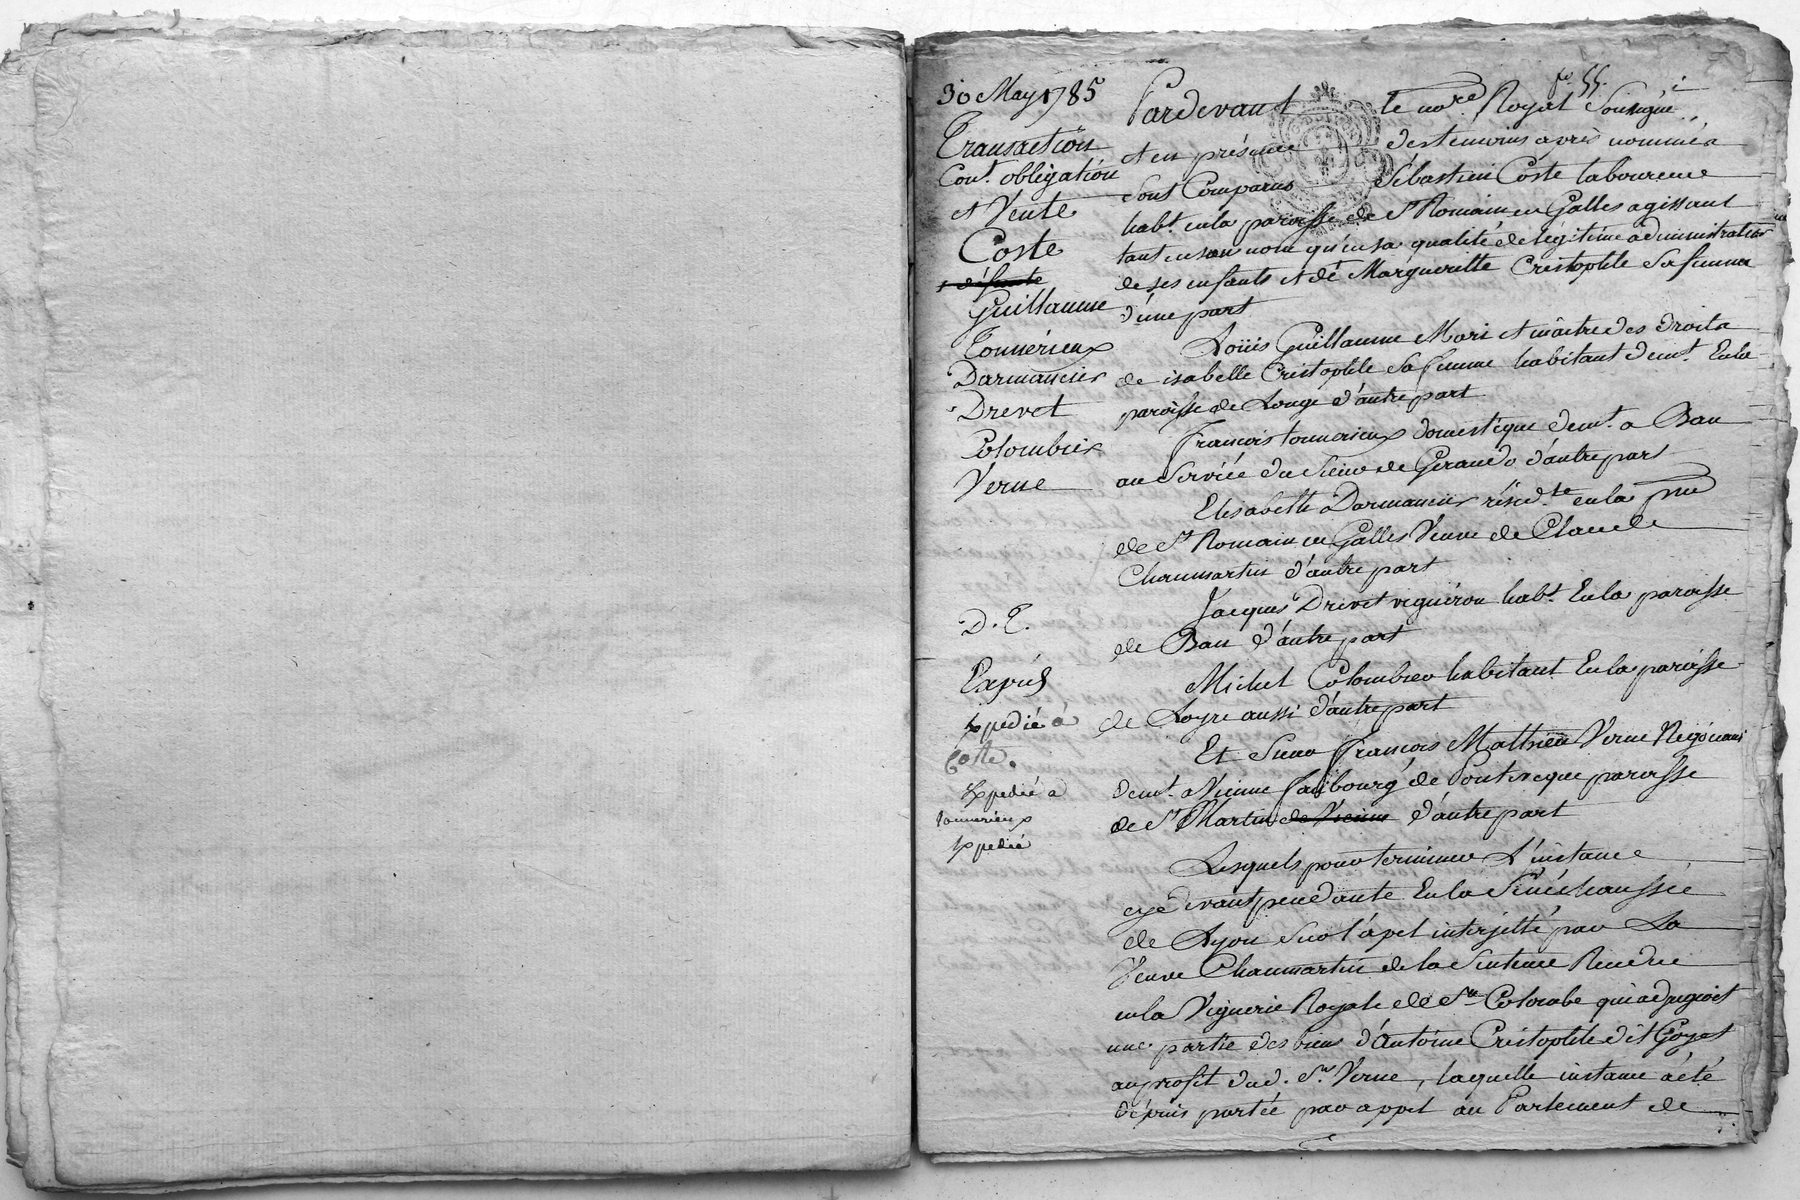 fo. 55.
30 May 1785
Transaction
Cont. obligation
et Vente
Coste
Guillaume
Tonnérieux
Darmancier
Drevet
Colombier
Verne
D. E.
Expédié à
Coste.
Expedié a
tonnerieux
Expedié
Pardevant le nore. Royal Soussigné
et en présence des temoins après nommés
sont Comparus Sébastien Coste laboureur
habt. en la paroisse de St Romain en Galles agissant
tant en son nom qu'en sa qualité de légitime administrateur
de ses enfants et de Margueritte Cristophle sa femme
d'une part
Loüis Guillaume Mari et maitre des droits
de isabelle Cristophle sa femme habitant demt. En la
paroisse de Longe d'autre part
François tonnerieux domestique demt. a Ban
au Service du Sieur de Gerando d'autre part
Elisabeth Darmancier résidte. en la
de St Romain en Galles Veuve de Claude
Chaumartin d'autre part
Jacques Drevet vigneron habt. En la paroisse
de Ban d'autre part
Michel Colombier habitant En la paroisse
de Loyre aussi d'autre part
Et Sieur François Mathieu Verne Négociant
demt. a Vienne faubourg de Ponteveque paroisse
de St Martin de Vienne d'autre part
Lesquels pour terminer L'instance
cy devant pendante En la Sénéchaussée
de Lyon sur l'apel interjetté par La
Veuve Chaumartin de la Sentence Rendue
en la Viguerie Royale de Ste Colombe qui adjugeoit
une partie des biens d'Antoine Cristophle dit Goyet
au profit dud. Sr. Verne, laquelle instance a été
depuis portée par appel au Parlement de